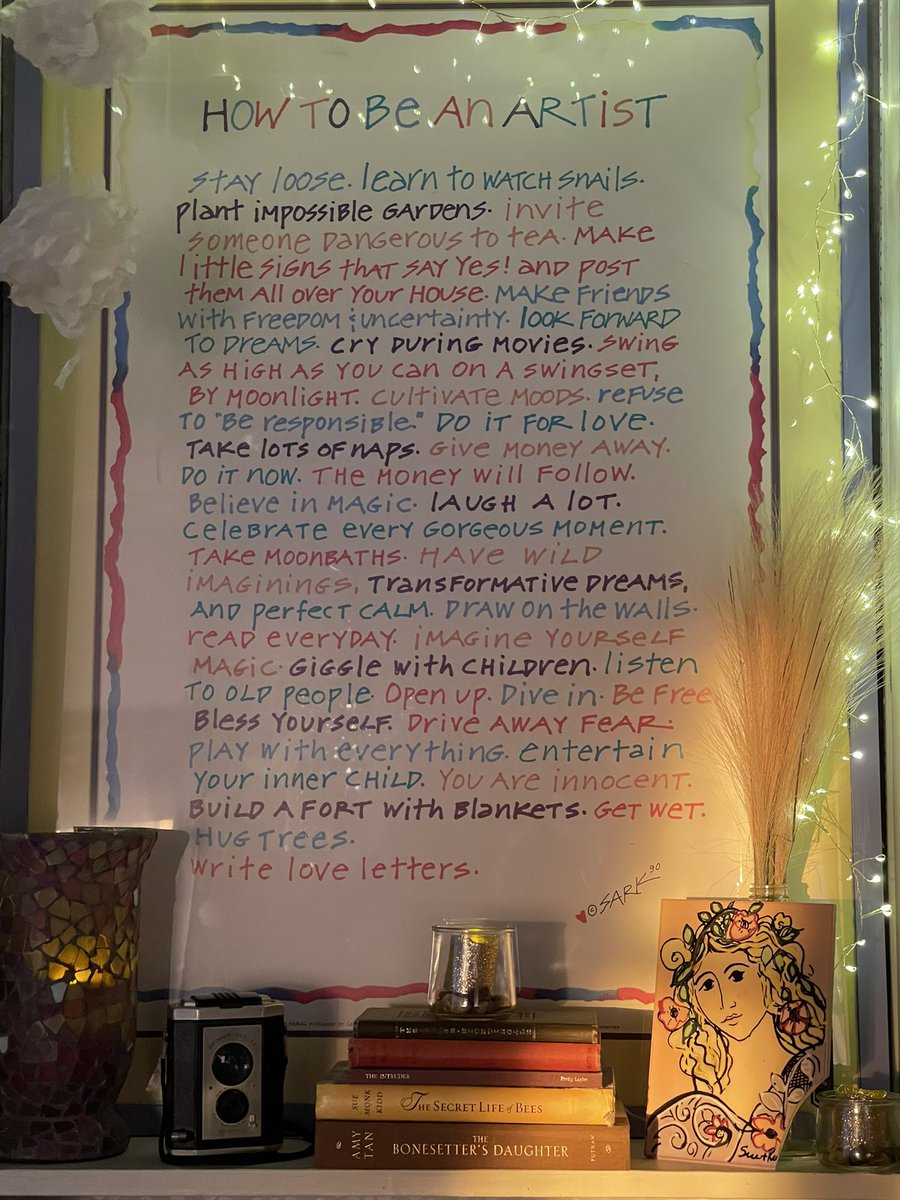 HOW TO BE AN ARTIST
STAY loose. learn to WATCH snails.
plant IMPOSSIBLE GARDENS. invite
someone DANGEROUS to teA. MAKE
little signs that SAY Yes! and POST
them All over Your House. MAKE Friends
with Freedom & uncertainty. look FORWARD
TO DREAMS. CRY DURING MOVIES. SWING
AS HIGH AS YOU CAN ON A SWINGSET,
BY MOONLIGHT. Cultivate MOODS. refuse
TO "Be responsible." DO iT FOR love.
TAKE lOTS OF NAPS. Give MONEY AWAY.
DO iT NOW. THE MONEY Will FOllOW.
Believe in MAGIC. lAUGH A lOT.
CeleBrATE every GORGEOUS MOMENT.
TAKE MOONBATHS. HAVE WilD
iMAGININGS, TRANSFORMATIVE DREAMS,
AND perfect CALM. DRAW ON the WAllS.
reAD everyDAY. iMAGINE YOURSELF
MAGIC. GiGGle with CHILDren. listen
TO OlD people. Open up. Dive in. Be Free
Bless Yourself. DRIVE AWAY FEAR.
PLAY with everything. entertain
Your inner CHILD. You Are innocent.
BUILD A FORT with BlanKeTS. GeT weT.
HUG Trees.
Write love letters.
©SARK 90
THE INTRUDER
SUE MONK KIDD THE SECRET LIFE of BEES
AMY TAN THE BONESETTER'S DAUGHTER PUTNAM